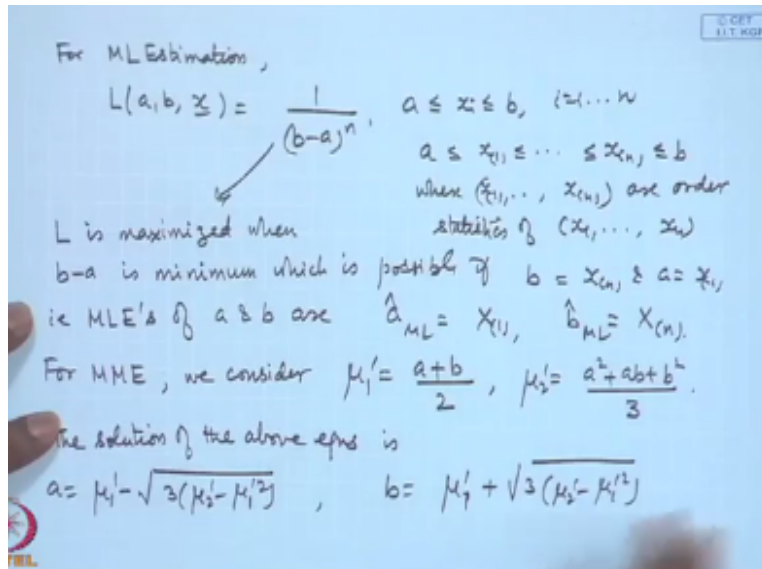 © CET
I.I.T. KGP
For ML Estimation,
L(a, b, x) = 1/(b-a)ⁿ, a ≤ xᵢ ≤ b, i=1...n
a ≤ x₍₁₎ ≤ ... ≤ x₍ₙ₎ ≤ b
where (x₍₁₎, .., x₍ₙ₎) are order
L is maximized when statistics of (x₁, ..., xₙ)
b-a is minimum which is possible if b = x₍ₙ₎ & a = x₍₁₎
ie MLE's of a & b are â_ML = X₍₁₎, b̂_ML = X₍ₙ₎.
For MME, we consider μ₁' = (a+b)/2, μ₂' = (a²+ab+b²)/3.
The solution of the above eqns is
a = μ₁' - √3(μ₂' - μ₁'²), b = μ₁' + √3(μ₂' - μ₁'²)